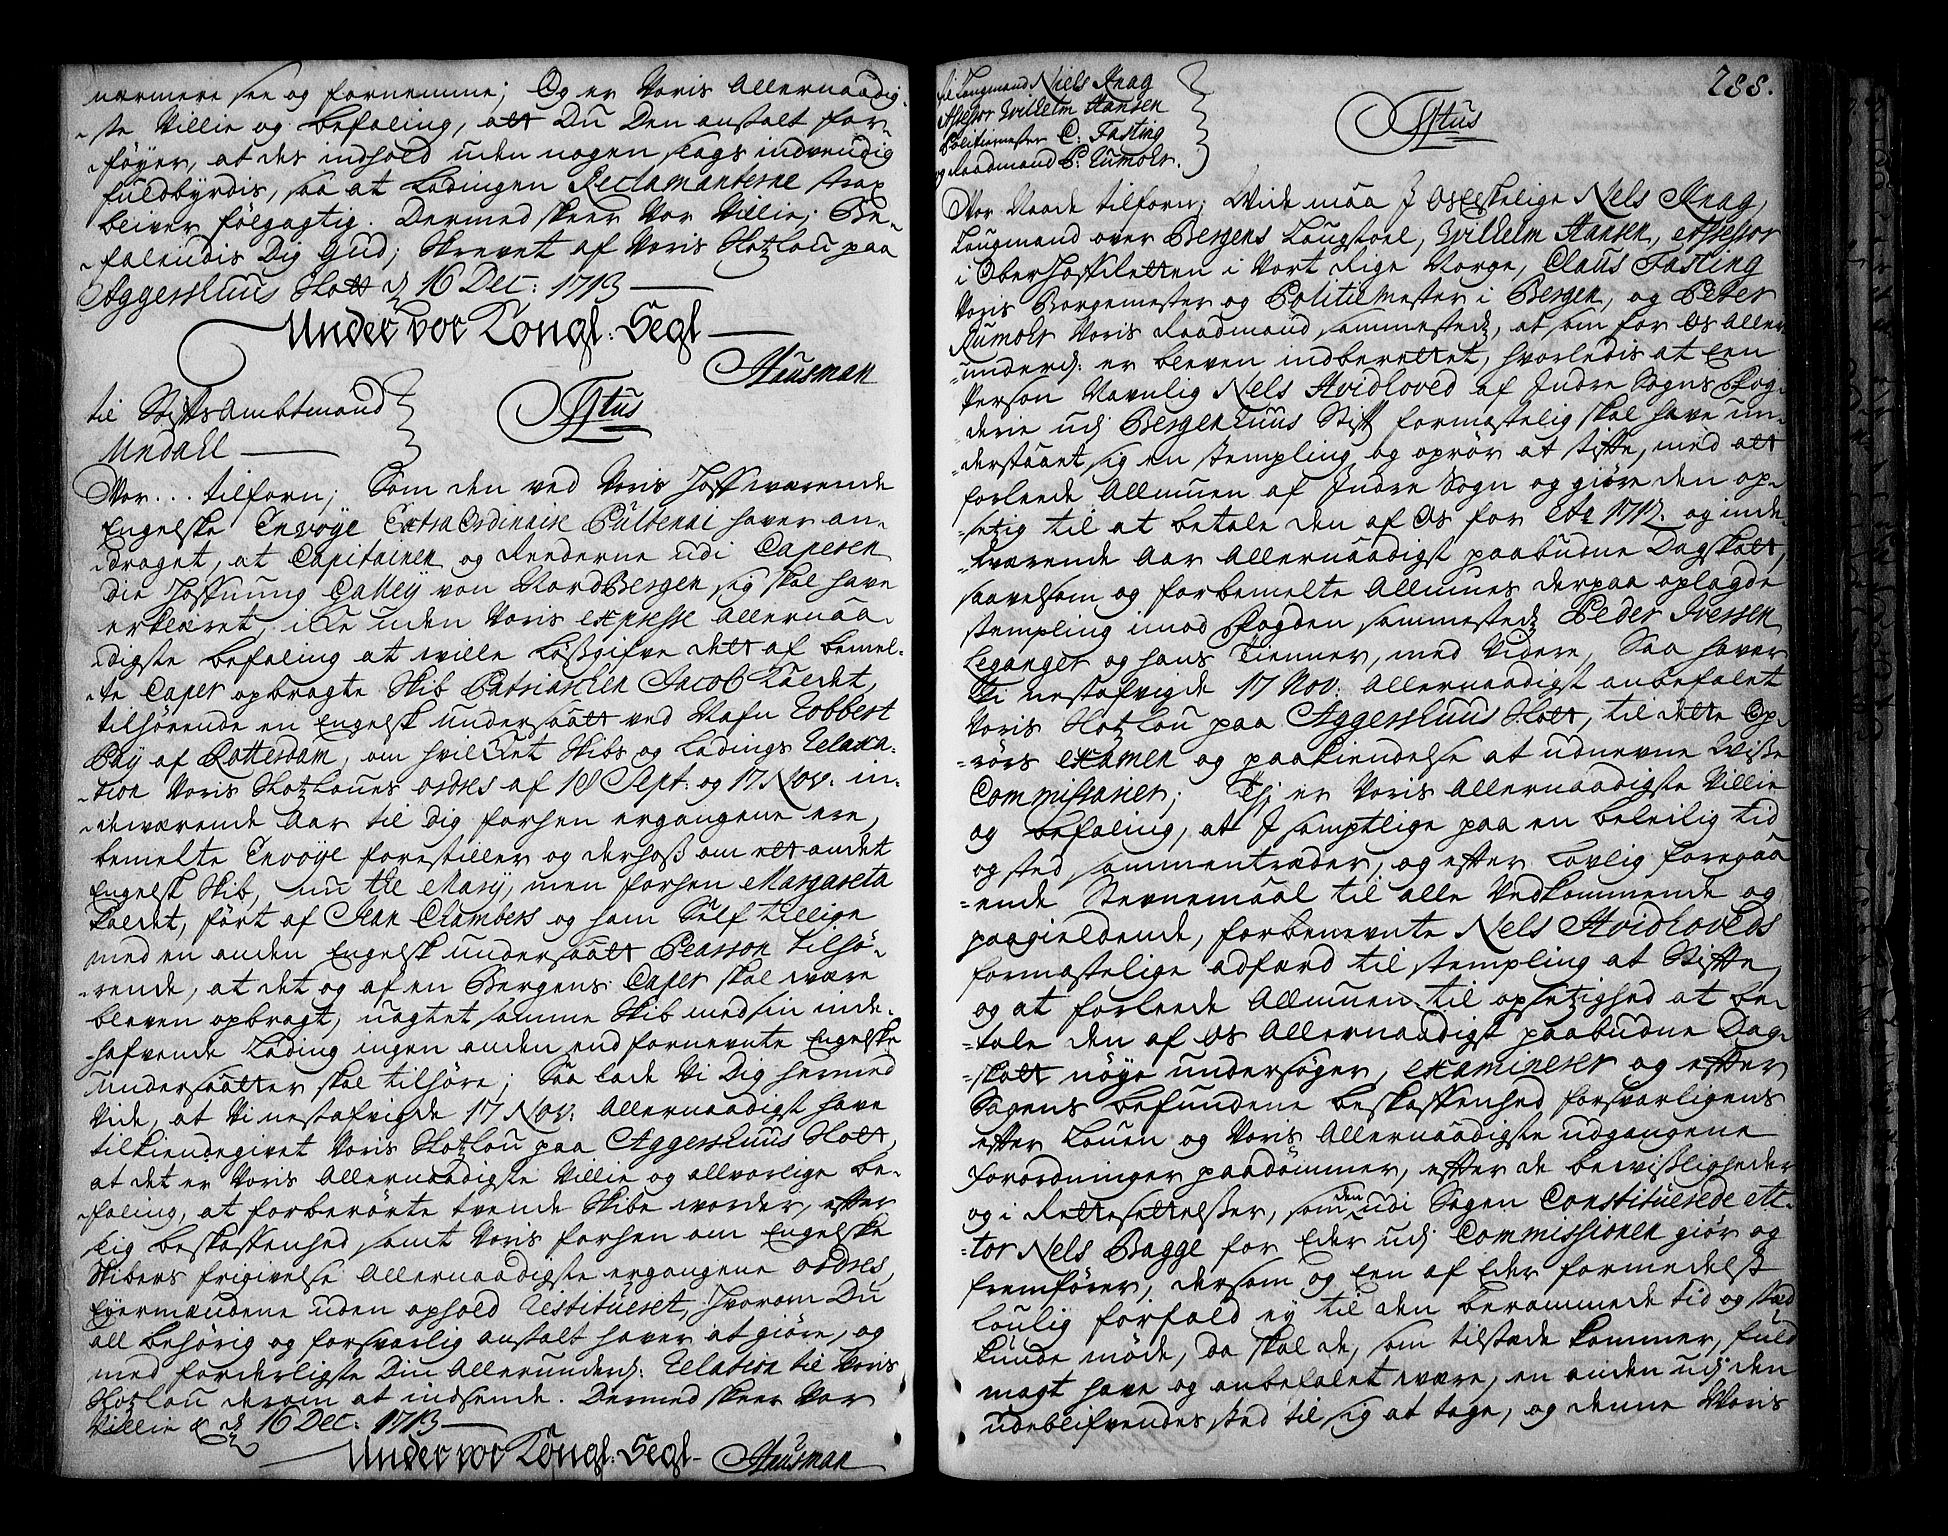 nærmere see og fornemme; Og er Voris Allernaadig-
-ste Villie og befaling, att Du Den anstalt for-
-føyer, at des indhold uden nogen slags indvendig
fuldbyrdis, saa at Ladingen Reclamanterne strax
bliver følgagtig. Dermed skeer Vor Villie; Be-
-falendis Dig Gud; Skrevet af Voris Slotzlou paa
Aggershuus Slott d 16 Dec: 1713
Under vor Kongl: Segl
Hausman
til StiftsAmbtmand
Undall
Ftus
Vor... tilforn; Som den ved Voris Hoff nærværende
Engelske Envoÿe ExtraOrdinaire Pultenai haver an-
-draget, at Capitainen og Reederne udi Caperen
die Hoffnung Galleÿ von Nord Bergen, sig skal have
erklæret, icke uden Voris expresse Allernaa-
-digste befaling at wille løsgifve dett af bemel-
-te Caper opbragte Skib Patriarchen Jacob kaldet,
tilhørende en Engelsk undersaatt ved Nafn Robbert
Paÿ af Rotterdam, om hvilket Skibs og Ladings Relaxa-
-tion Voris Slotzlous ordres af 18 Sept: og 17 Nov: in-
-deværende Aar til dig forhen ergangene ere,
bemelte Envoÿe forestiller og derhoss om ett andet
Engelsk Skib, nu the Marÿ, men forhen Margareta
kaldet, ført af Jean Chambers og ham Self tillige
med en anden Engelsk undersaatt Pearson tilhø-
-rende, at det og af en Bergens Caper skal være
bleven opbragt, uagtet samme Skib med sin inde-
-hafvende Lading ingen anden end fornevnte Engelske
undersaatter skal tilhøre; Saa lade Vi Dig hermed
Vide, at Vi nestafvigde 17 Nov: Allernaadigst have
tilkiendegivet Voris Slotzlou paa Aggershuus Slott,
at det er Voris Allernaadigste Villie og allvorlige be-
-faling, at forberørte tvende Skibe worder, effter
sig beskaffenhed, samt Voris forhen om Engelske
Skibers frigivelse Allernaadigste ergangene ordres,
Eÿermændene uden ophold restitueret, hvorom Du
all behørig og forsvarlig anstalt haver at giøre, og
med forderligste Din Allerunderd: Relation til Voris
Slotzlou derom at indsende. Dermed skeer Vor
Villie & d 16 Dec: 1713
Under vor Kongl: Segl
Hausman
288.
til Laugmand Niels Knag
Assessor Wilhelm Hansen
Politiemester C. Fasting
og Raadmand P. Rumohr.
Ftus
Vor Naade tilforn; Wide maa I Os Elskelige Nels Knag,
Laugmand over Bergens Laugstoel, Wilhelm Hansen, Assessor
i OberHoffRetten i Vort Rige Norge, Claus Fasting
Voris Borgemester og Politiemester i Bergen, og Peter
Rumohr Voris Raadmand sammesteds, at som for Os Aller-
-underd: er bleven indberettet, hvorledis at Een
Person Navnlig Nels Hvidloved af Indre Sogns Fog-
-derie udj Bergenhuus Stift formastelig skal have un-
-derstaaet sig en stempling og oprør at stiffte, med att
forleede Allmuen af Indre Sogn og giøre den op-
-setzig til at betale den af Os for Ao 1712. og inde-
-værende Aar Allernaadigst paabudne Dagskatt,
saavelsom og forbemelte Allmues derpaa oplagde
stempling imod Fogden sammesteds Peder Iversen
Leganger og hans Tienner, med Videre, Saa haver
Vi nestafvigde 17 Nov: Allernaadigst anbefalet
Voris Slotzlou paa Aggershuus Slott, til dette Op-
-rørs examen og paakiendelse at udnevne Wisse
Commissarier; Thj er Voris Allernaadigste Villie
og befaling, at I samptlige paa en beleilig tid
og sted sammentræder, og effter Lovlig foregaa-
-ende Stevnemaal til alle Vedkommende og
paagieldende, forbenevnte Nels Hvidloveds
formastelige adfærd til stempling at Stiffte,
og at forleede Allmuen til opsetzighed at be-
-tale den af Os Allernaadigst paabudne Dag-
-skatt nøye undersøger, examinerer og effter
Sagens befundene beskaffenhed forsvarligens
effter Louen og Voris Allernaadigste udgangene
forordninger paadømmer, effter de bevissligheder
og i Rettesettelsser, som den udi Sagen Constituerede Ac-
-tor Nels Bagge for Eder udj Commissionen giør og
fremfører, dersom og Een af Eder formedelst
Loulig forfald eÿ til den berammede tid og stæd
kunde møde, da skal de, som tilstæde kommer, fuld
magt have og anbefalet være, en anden udj den
udeblifvendes sted til sig at tage, og denne Voris